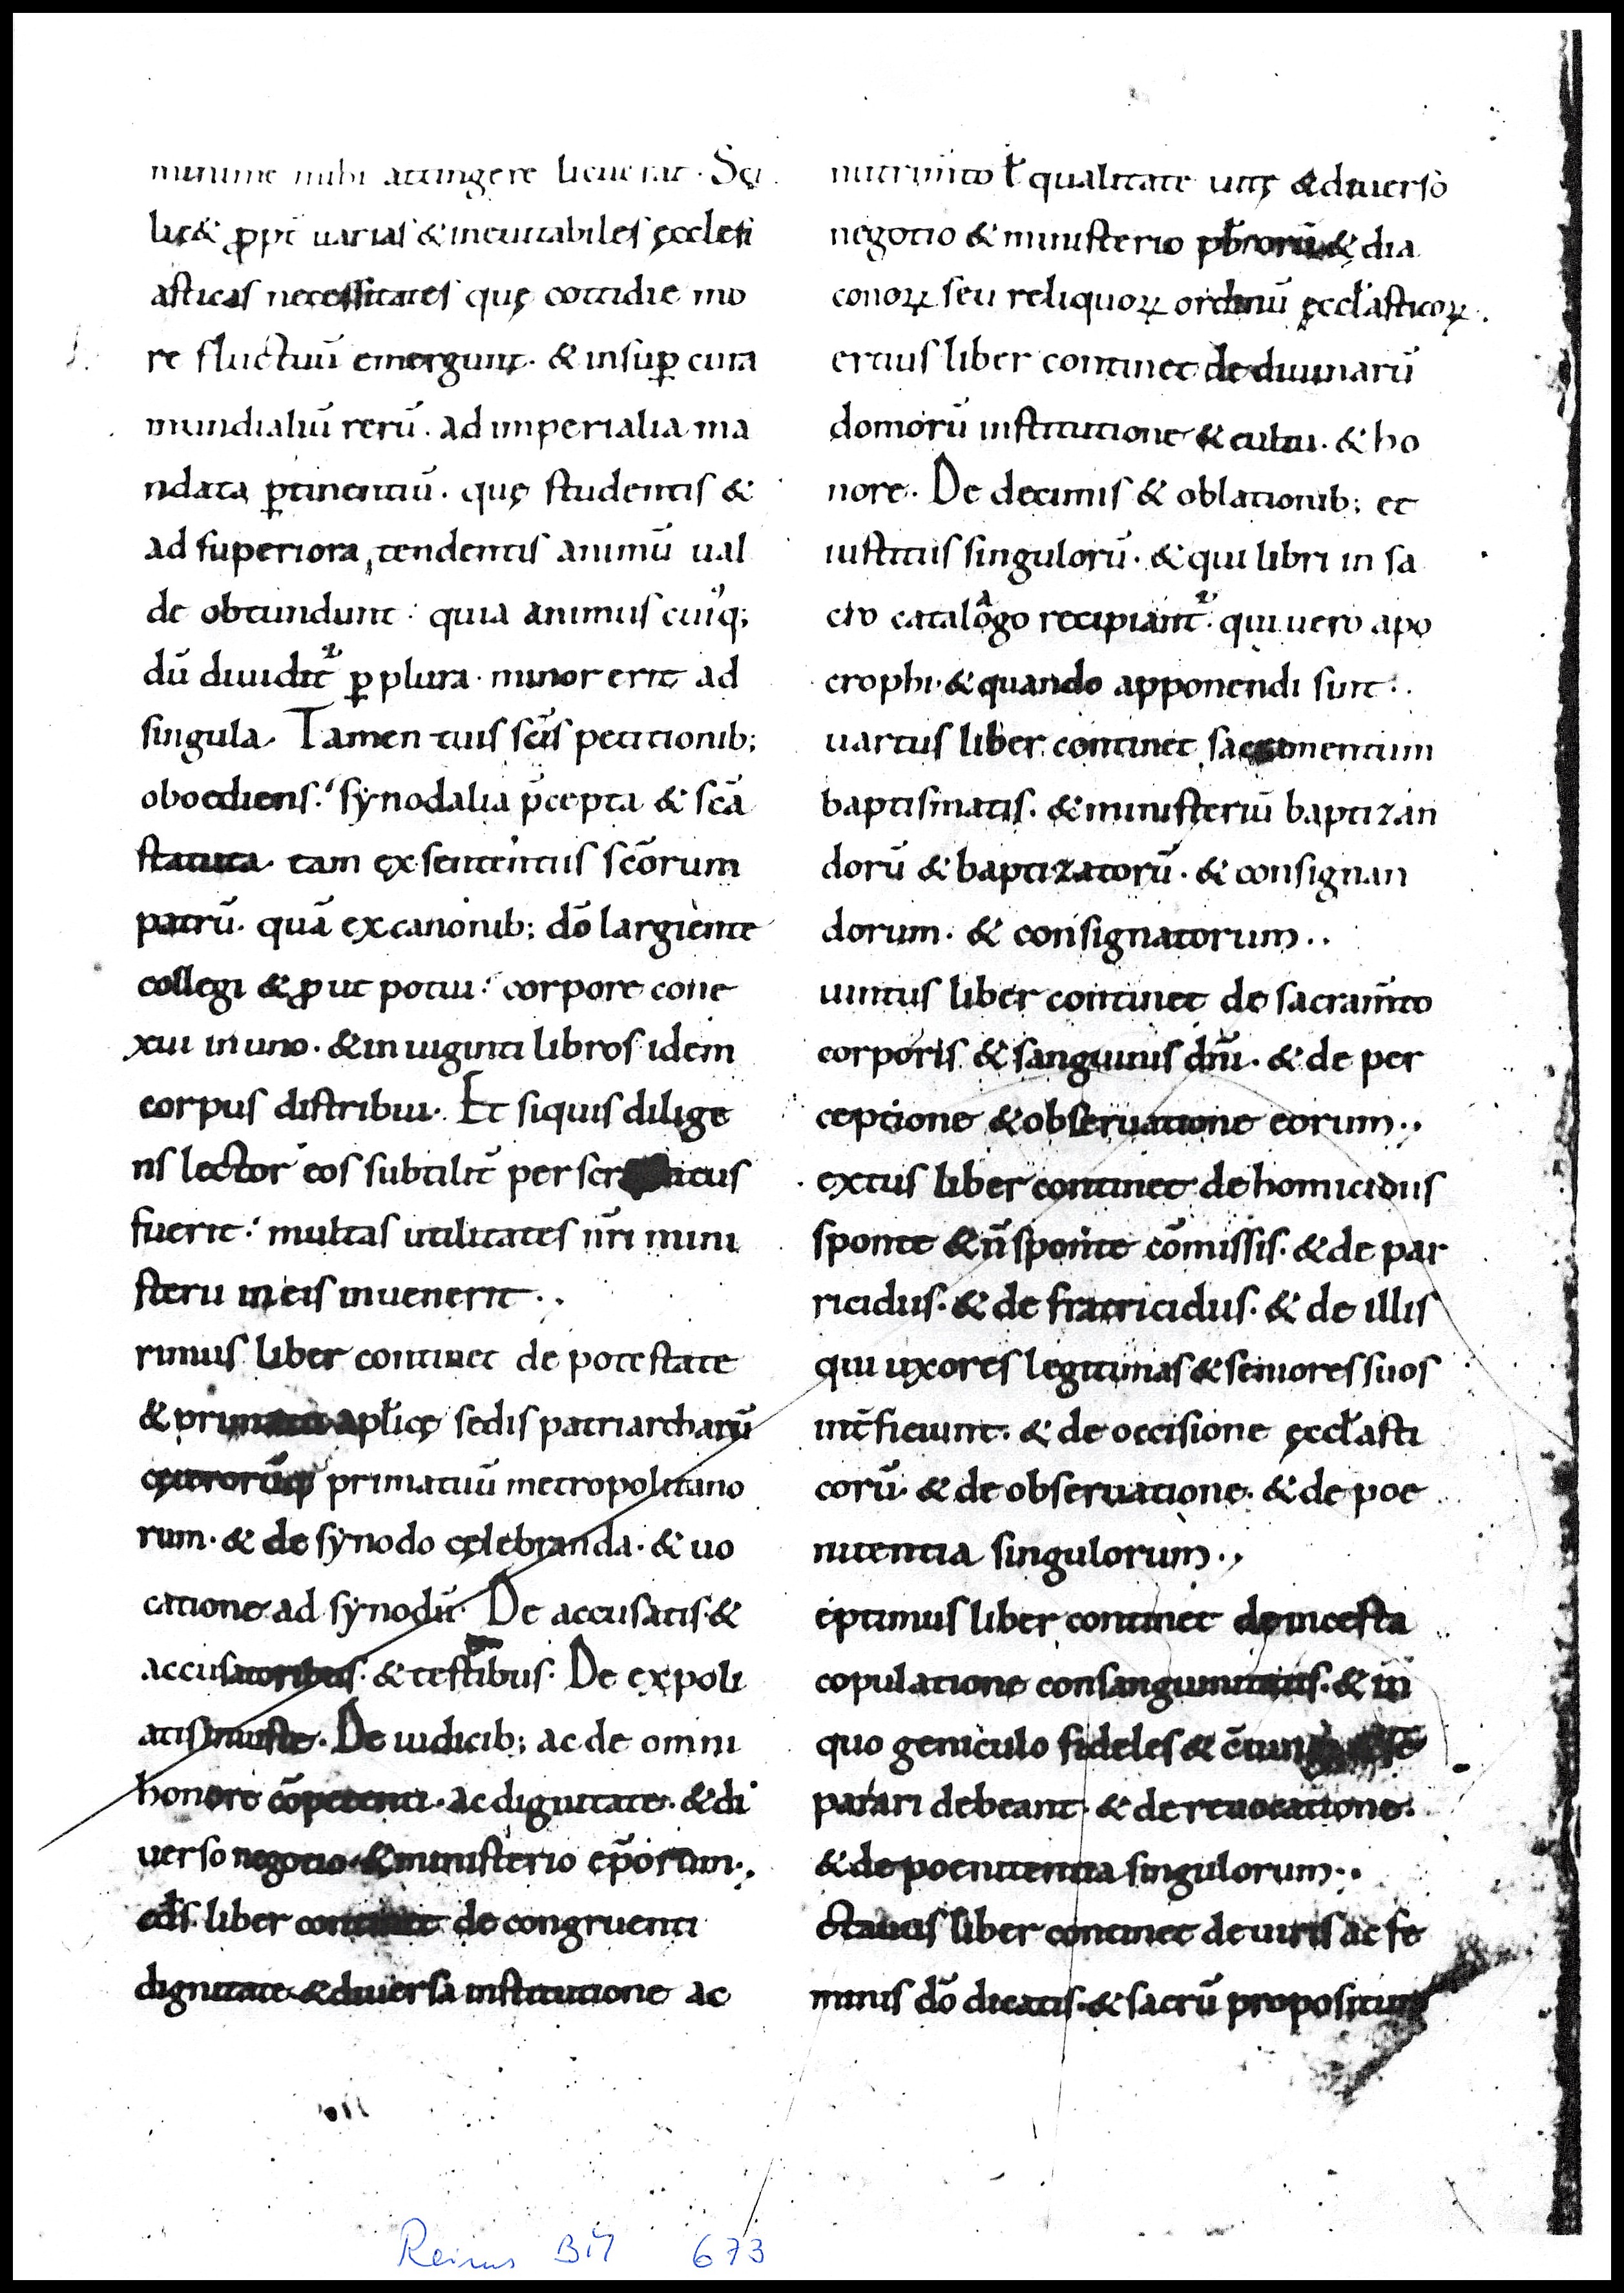 minime mihi attingere licuerat. Sci
lic& ꝓpt̄ uarias & ineuitabiles ęcclesi
asticas necessitates quę cottidie mo
re fluctuū emergunt. & insuꝑ cura
mundialiū rerū. ad imperialia ma
ndata ꝑtinentiū. quę studentis &
ad superiora, tendentis animū ual
de obtundunt: quia animus cuiq;
dū diuidit̄ ꝑ plura. minor erit ad
singula. Tamen tuis sc̄is petitionib;
oboediens. synodalia p̄cepta & sc̄a
statuta tam ex sententiis sc̄orum
patrū. quā ex canonib; dō largiente
collegi & ꝓut potui: corpore cone
xui in uno. & in uiginti libros idem
corpus distribui. Et siquis dilige
ns lector eos subtilit̄ per
fuerit: multas utilitates nr̄i mini
sterii in eis inuenerit..
rimus liber continet de potestate
& primatu apl̄icę sedis patriarcharū
cęterorūq; primatuū metropolitano
rum. & de synodo cęlebranda. & uo
catione ad synodū. De accusatis. &
accusatoribus. & testibus. De expoli
atis iniuste. De iudicib; ac de omni
honore cōpetenti. ac dignitate. & di
uerso negotio. & ministerio ep̄orum.,
cd̄s liber continet de congruenti
dignitate & diuersa institutione ac
nutrim̄to ł qualitate uitę & diuerso
negotio & ministerio pb̄rorū & dia
conoꝝ seu reliquoꝝ ordinū ęccl̄asticoꝝ.
ertius liber continet de diuinarū
domorū institutione & cultu. & ho
nore. De decimis & oblationib; et
iustitiis singulorū. & qui libri in sa
cro catalogo recipiant̄. qui uero apo
crophi. & quando apponendi sunt:.
uartus liber continet sacramentum
baptismatis. & ministeriū baptizan
dorū & baptizatorū. & consignan
dorum. & consignatorum..
uintus liber continet de sacram̄to
corporis & sanguinis dn̄i. & de per
ceptione & obseruatione eorum.,
extus liber continet de homicidiis
sponte & n̄ sponte cōmissis. & de par
ricidiis. & de fratricidiis. & de illis
qui uxores legitimas & seniores suos
int̄ficiunt. & de occisione ęccl̄asti
corū. & de obseruatione. & de poe
nitentia singulorum.,
eptimus liber continet de incesta
copulatione consanguinitatis. & in
quo geniculo fideles &
parari debeant. & de reuocatione.
& de poenitentia singulorum..
octauus liber continet de uiris ac fe
minis dō dicatis. & sacrū propositum
Reims BM 673